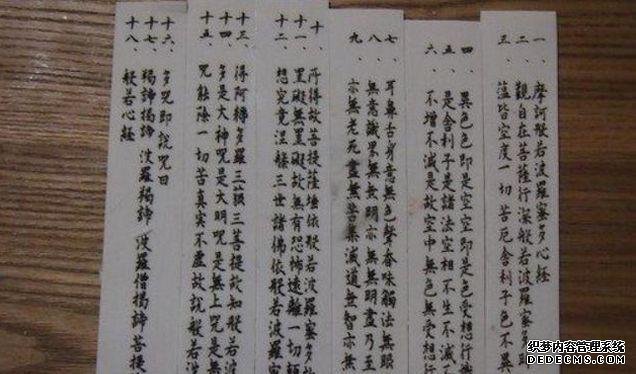 一、摩訶般若波羅蜜多心經
二、觀自在菩薩行深般若波羅蜜多
三、蘊皆空度一切苦厄舍利子色不異
四、異色色即是空空即是色受想行
五、是舍利子是諸法空相不生不滅不
六、不增不減是故空中無色無受想行
七、耳鼻舌身意無色聲香味觸法無眼
八、無意識界無無明亦無無明盡乃至
九、亦無老死盡無苦集滅道無智亦無
十、所得故菩提薩埵依般若波羅蜜多
十一、罣礙無罣礙故無有恐怖遠離一切顛
十二、想究竟涅槃三世諸佛依般若波羅
十三、得阿耨多羅三藐三菩提故知般若波
十四、多是大神咒是大明咒是無上咒是無
十五、咒能除一切苦真實不虛故說般若波
十六、多咒即說咒曰
十七、羯諦羯諦 波羅羯諦 波羅僧揭諦菩提
十八、般若心經
织梦内容管理系统
DEDECMS.COM